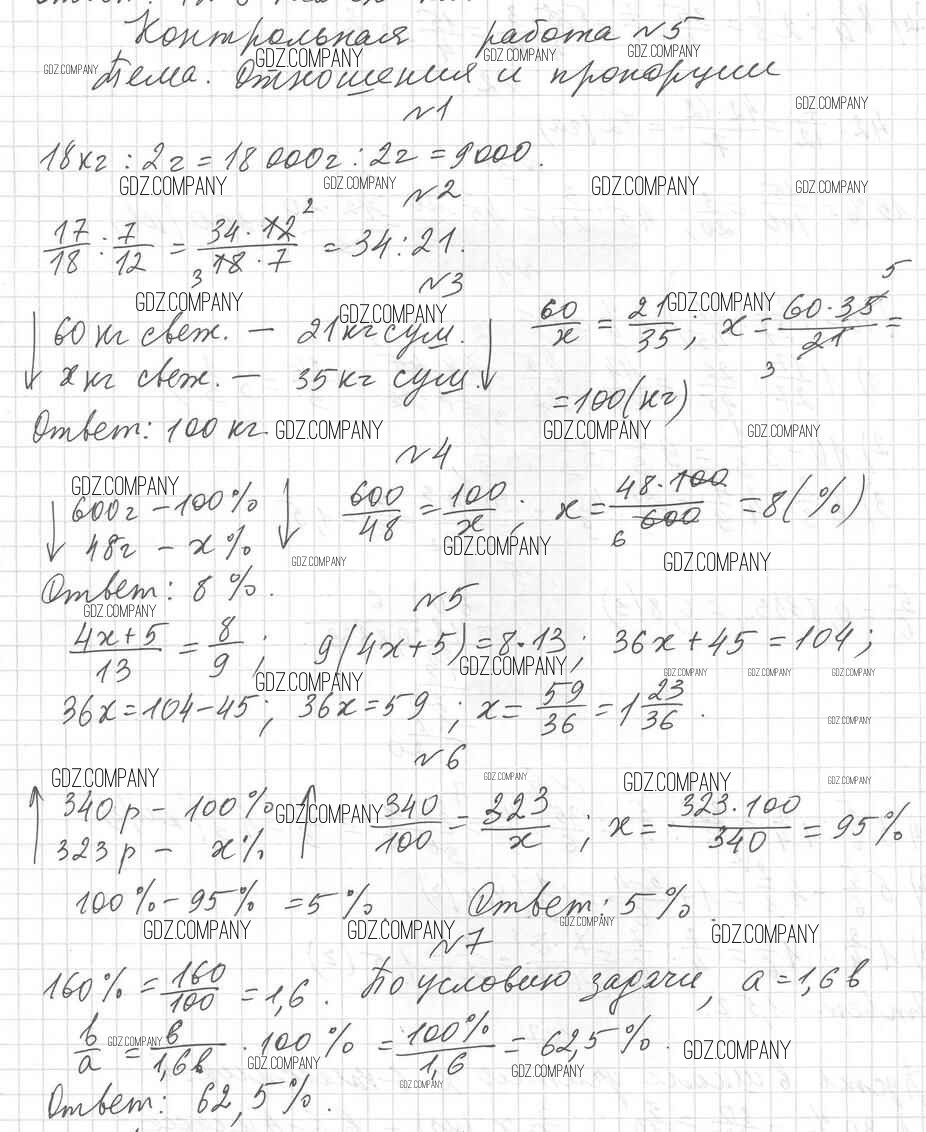 Контрольная работа №5
Тема. Отношения и пропорции
№1
18кг : 2г = 18 000г : 2г = 9000.
№2
17/18 : 7/12 = 34·12/18·7 = 34:21.
№3
60 кг свеж. — 21 кг суш.
x кг свеж. — 35 кг суш.
60/x = 21/35; x = 60·35/21 =
= 100 (кг)
Ответ: 100 кг
№4
600г — 100%
48г — x%
600/48 = 100/x; x = 48·100/600 = 8 (%)
Ответ: 8 %.
№5
4x+5/13 = 8/9; 9(4x+5) = 8·13; 36x + 45 = 104;
36x = 104 − 45; 36x = 59; x = 59/36 = 1 23/36.
№6
340 р — 100%
323 р — x%
340/100 = 323/x; x = 323·100/340 = 95%
100% − 95% = 5%. Ответ: 5%.
№7
160% = 160/100 = 1,6. По условию задачи, a = 1,6 в
в/a = в/1,6в · 100% = 100%/1,6 = 62,5%.
Ответ: 62,5%.
GDZ.COMPANY